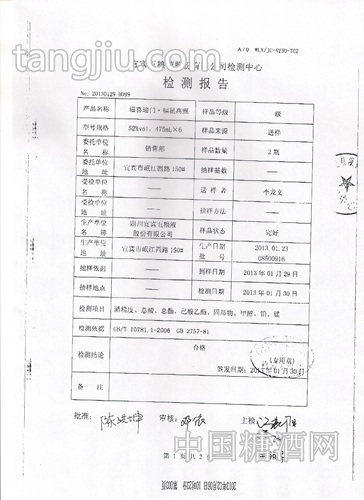 A/0 WLY/JC-0230-T02
公司检测中心
检测报告
No: 20130129 B099
产品名称 福喜迎门·福星高照 样品等级 级
型号规格 52%vol，475mL×6 样品来源 送样
委托单位名称 销售部 样品数量 2瓶
委托单位地址 宜宾市岷江西路150# 抽样基数 ——
受检单位名称 —— 送样者 李龙文
受检单位地址 —— 抽样方法 ——
生产单位名称 四川宜宾五粮液股份有限公司 样品状态 完好
生产单位地址 宜宾市岷江西路150# 生产日期批号 2013.01.23 08500916
抽样依据 —— 到样日期 2013年01月29日
抽样地点 —— 检测日期 2013年01月30日
检测项目 酒精度、总酸、总酯、己酸乙酯、固形物、甲醇、铅、锰
检测依据 GB/T 10781.1-2006 GB 2757-81
检测结论 合格
（专用章）
签发日期：2013年01月30日
备注 ——
批准： 审核： 主检：
第1页 共2
中国糖酒网
tangjiu.com
tangjiu.com